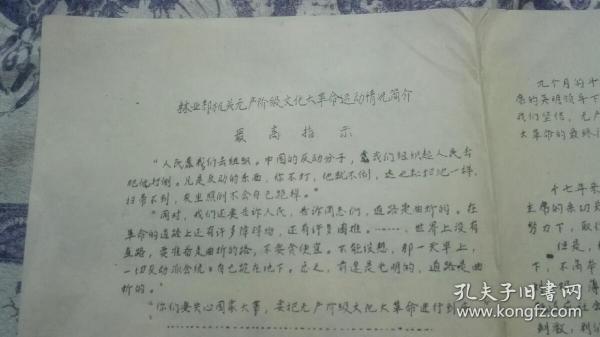 林业部机关无产阶级文化大革命运动情况简介
最高指示
“人民靠我们去组织。中国的反动分子，靠我们组织起人民去
把他打倒。凡是反动的东西，你不打，他就不倒，这也和扫地一样，
扫帚不到，灰尘照例不会自己跑掉。”
“同时，我们还要告诉人民，告诉同志们，道路是曲折的。在
革命的道路上还有许多障碍物，还有许多困难。……世界上没有
直路，要准备走曲折的路，不要贪便宜。不能设想，那一天早上，
一切反动派会统统自己跪在地下。总之，前途是光明的，道路是曲
折的。”
“你们要关心国家大事，要把无产阶级文化大革命进行到底
九个月的
席的英明领导下
我们坚信，无产
大革命的最终
十七年来
主席的亲切关
努力下，取
但是，
下，不高举
制散，
孔夫子旧书网
www.kongfz.com